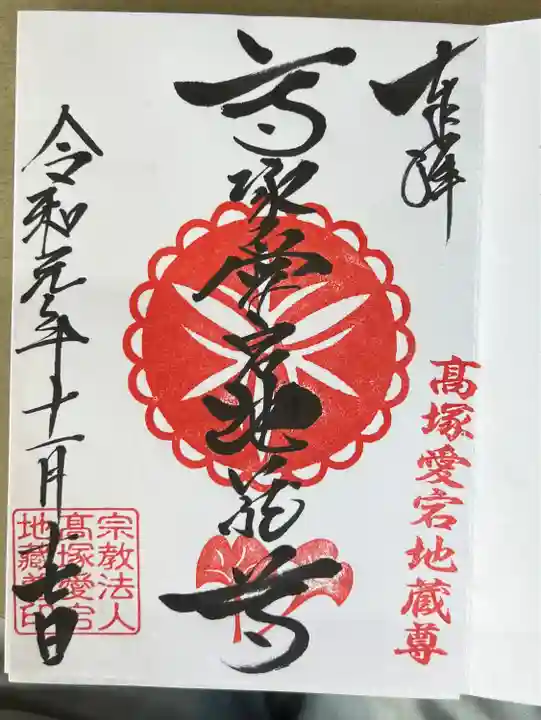 奉拝
髙塚愛宕地蔵尊
高塚愛宕地蔵尊
令和元年十一月十七日
宗教法人
高塚愛宕
地蔵尊印